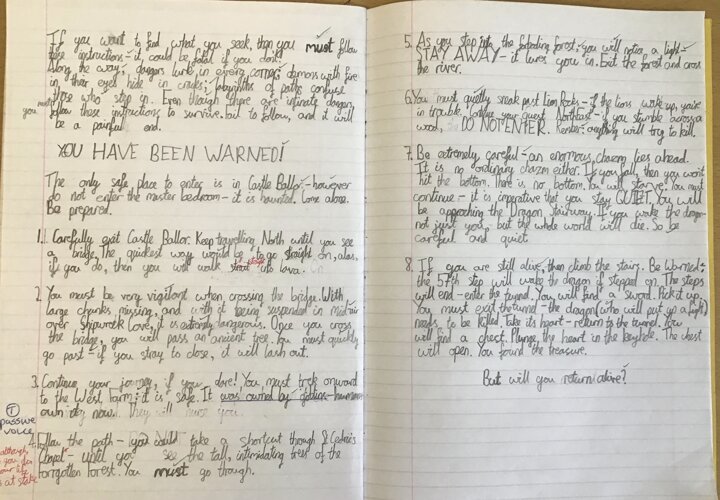 If you want to find what you seek, then you must follow
these instructions - it could be fatal if you don't!
Along the way, dangers lurk in every corner; demons with fire
in their eyes hide in cracks; labyrinths of paths confuse
those who step on. Even though there are infinate dangers,
you must follow these instructions to survive. but to follow, and it will
be a painful end.
YOU HAVE BEEN WARNED!
The only safe place to enter is in Castle Ballor - however
do not enter the master bedroom - it is haunted. Come alone.
Be prepared.
1. Carefully exit Castle Ballor. Keep travelling North until you see
a bridge. The quickest way would be to go straight on, alas,
if you do, then you will walk straight into lava.
2. You must be very vigilant when crossing the bridge. With
large chunks missing, and with it being suspended in mid-air
over Shipwreck Cove, it is extremely dangerous. Once you cross
the bridge, you will pass an ancient tree. You must quickly
go past - if you stray to close, it will lash out.
3. Continue your journey, if you dare! You must trek onward
to the West Farm; it is safe. It was owned by goblins - humans
own it now. They will nurse you.
① passive
voice
4. Follow the path - you could take a shortcut though St Cedric's
Chapel - until you see the tall, intimidating trees of the
Forrgotten Forest. You must go though.
although,
you do
your life
is at stake
5. As you step into the forboding forest, you will notice a light -
STAY AWAY - it lures you in. but the forest and cross
the river.
6. You must quietly sneak past Lion Rocks - if the lions wake up, you're
in trouble. Continue your quest Northeast - if you stumble across a
wood, DO NOT ENTER. Remember, anything will try to kill.
7. Be extremely careful - an enormous chazm lies ahead.
It is no ordinary chazm either. If you fall, then you won't
hit the bottom. There is no bottom. You will starve. You must
continue - it is imperative that you stay QUIET. You will
be approaching the Dragon stairway. If you wake the dragon -
not just you, but the whole world will die. So be
careful and quiet.
8. If you are still alive, then climb the stairs. Be Warned:
the 57th step will wake the dragon if stepped on. The steps
will end - enter the tunnel. You will find a sword. Pick it up.
You must exit the tunnel - the dragon (who will put up a fight)
needs to be killed. Take its heart - return to the tunnel. You
will find a chest. Plunge the heart in the keyhole. The chest
will open. You found the treasure.
But will you return alive?